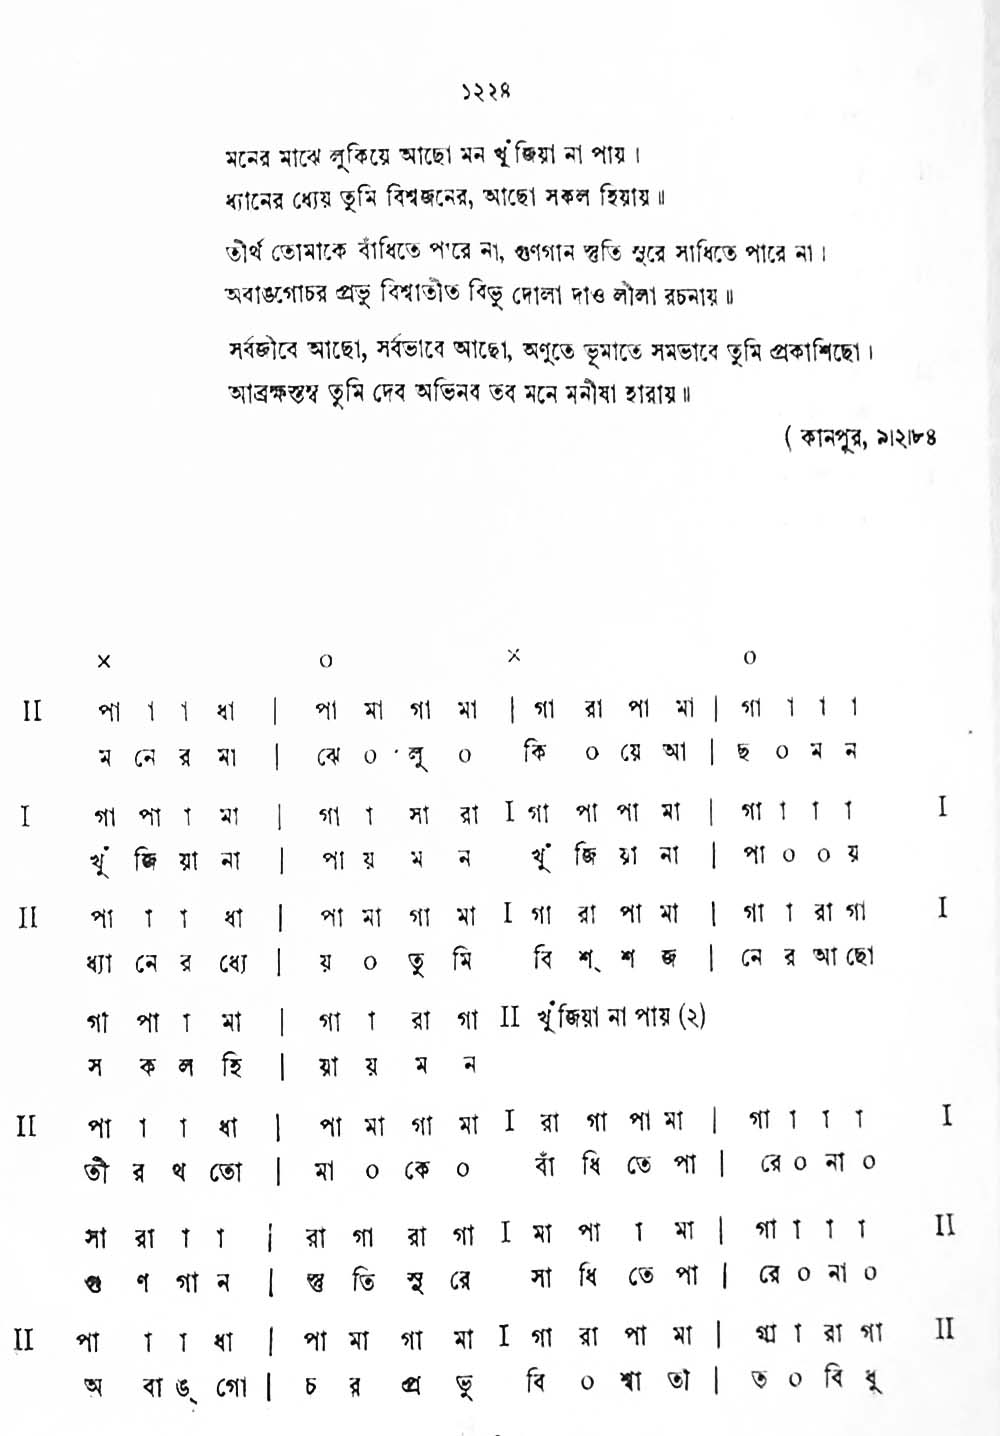 ১২২৪
মনের মাঝে লুকিয়ে আছো মন খুঁজিয়া না পায়।
ধ্যানের ধ্যেয় তুমি বিশ্বজনের, আছো সকল হিয়ায়॥
তীর্থ তোমাকে বাঁধিতে পারে না, গুণগান স্তুতি সুরে সাধিতে পারে না।
অবাঙগোচর প্রভু বিশ্বাতীত বিভু দোলা দাও লীলা রচনায়॥
সর্বজীবে আছো, সর্বভাবে আছো, অণুতে ভূমাতে সমভাবে তুমি প্রকাশিছো।
আব্রহ্মস্তম্ব তুমি দেব অভিনব তব মনে মনীষা হারায়॥
( কানপুর, ৯।২।৮৪
× o × o
II পা া া ধা | পা মা গা মা | গা রা পা মা | গা া া া
ম নে র মা | ঝে o লু o কি o য়ে আ | ছ o ম ন
I গা পা া মা | গা া সা রা I গা পা পা মা | গা া া া I
খুঁ জি য়া না | পা য় ম ন খুঁ জি য়া না | পা o o য়
II পা া া ধা | পা মা গা মা I গা রা পা মা | গা া রা গা I
ধ্যা নে র ধ্যে | য় o তু মি বি শ্ শ জ | নে র আ ছো
গা পা া মা | গা া রা গা II খুঁজিয়া না পায় (২)
স ক ল হি | য়া য় ম ন
II পা া া ধা | পা মা গা মা I রা গা পা মা | গা া া া I
তী র থ তো | মা o কে o বাঁ ধি তে পা | রে o না o
সা রা া া | রা গা রা গা I মা পা া মা | গা া া া II
গু ণ গা ন | স্তু তি সু রে সা ধি তে পা | রে o না o
II পা া া ধা | পা মা গা মা I গা রা পা মা | গা া রা গা II
অ বা ঙ্ গো | চ র প্র ভু বি o শ্বা তী | ত o বি ধু